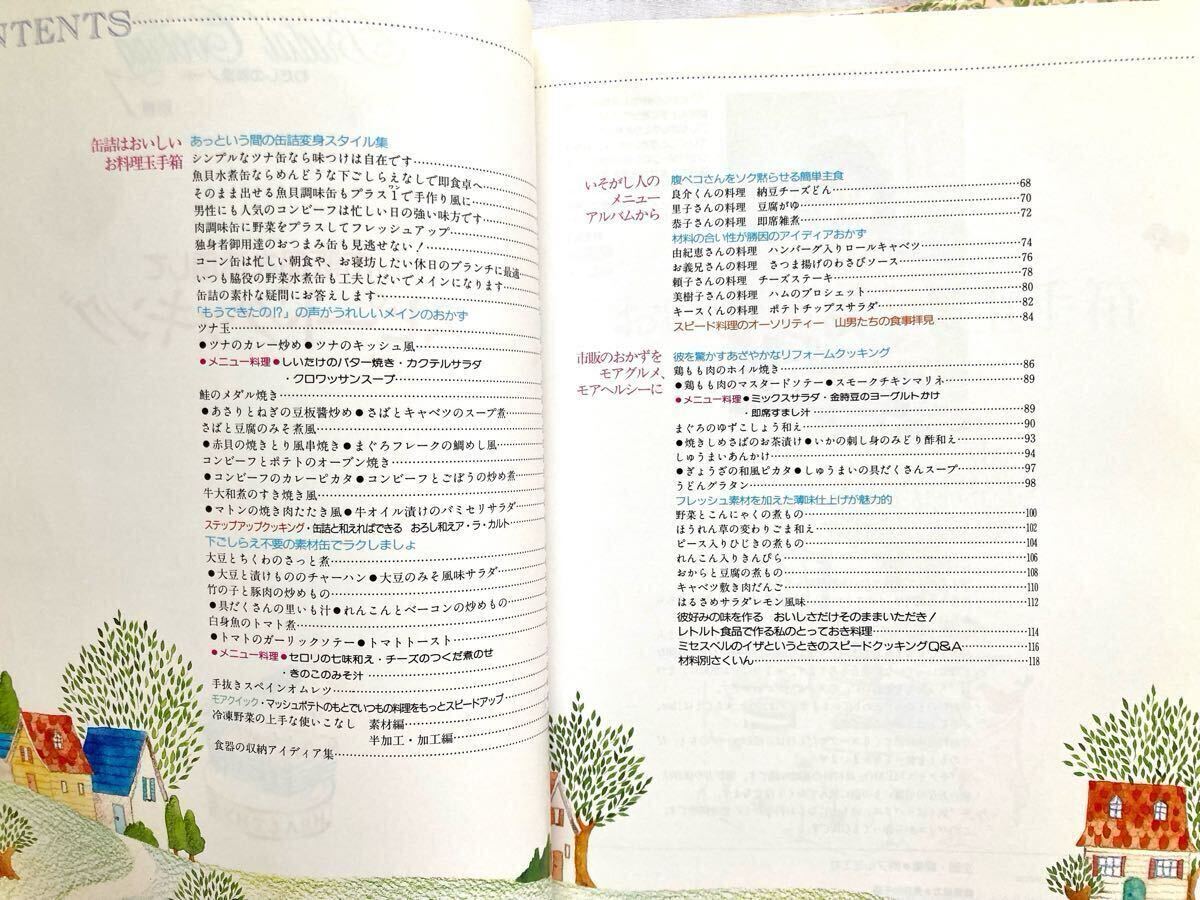 NTENTS
缶詰はおいしい
お料理玉手箱
あっという間の缶詰変身スタイル集
シンプルなツナ缶なら味つけは自在です
魚貝水煮缶ならめんどうな下ごしらえなしで即食卓へ
そのまま出せる魚貝調味缶もプラス1で手作り風に
ワン
男性にも人気のコンビーフは忙しい日の強い味方です
肉調味缶に野菜をプラスしてフレッシュアップ
独身者御用達のおつまみ缶も見逃せない!
コーン缶は忙しい朝食や、お寝坊したい休日のブランチに最適
いつも脇役の野菜水煮缶も工夫しだいでメインになります
缶詰の素朴な疑問にお答えします
「もうできたの!?」の声がうれしいメインのおかず
ツナ玉
●ツナのカレー炒め●ツナのキッシュ風
●メニュー料理●しいたけのバター焼き・カクテルサラダ
・クロワッサンスープ
鮭のメダル焼き
●あさりとねぎの豆板醬炒め●さばとキャベツのスープ煮
さばと豆腐のみそ煮風
●赤貝の焼きとり風串焼き●まぐろフレークの鯛めし風
コンビーフとポテトのオーブン焼き
●コンビーフのカレーピカタ●コンビーフとごぼうの炒め煮
牛大和煮のすき焼き風
●マトンの焼き肉たたき風●牛オイル漬けのバミセリサラダ
ステップアップクッキング・缶詰と和えればできる おろし和えア・ラ・カルト
下ごしらえ不要の素材缶でラクしましょ
大豆とちくわのさっと煮
●大豆と漬けもののチャーハン●大豆のみそ風味サラダ
竹の子と豚肉の炒めもの
●具だくさんの里いも汁●れんこんとベーコンの炒めもの
白身魚のトマト煮
●トマトのガーリックソテー●トマトトースト
●メニュー料理●セロリの七味和え・チーズのつくだ煮のせ
・きのこのみそ汁
手抜きスペインオムレツ
モアクイック・マッシュポテトのもとでいつもの料理をもっとスピードアップ
冷凍野菜の上手な使いこなし 素材編
半加工・加工編
食器の収納アイディア集
いそがし人の
メニュー
アルバムから
腹ペコさんをソク黙らせる簡単主食
良介くんの料理 納豆チーズどん 68
里子さんの料理 豆腐がゆ 70
恭子さんの料理 即席雑煮 72
材料の合い性が勝因のアイディアおかず
由紀恵さんの料理 ハンバーグ入りロールキャベツ 74
お義兄さんの料理 さつま揚げのわさびソース 76
頼子さんの料理 チーズステーキ 78
美樹子さんの料理 ハムのブロシェット 80
キースくんの料理 ポテトチップスサラダ 82
スピード料理のオーソリティー 山男たちの食事拝見 84
市販のおかずを
モアグルメ、
モアヘルシーに
彼を驚かすあざやかなリフォームクッキング
鶏もも肉のホイル焼き 86
●鶏もも肉のマスタードソテー●スモークチキンマリネ 89
●メニュー料理●ミックスサラダ・金時豆のヨーグルトかけ
・即席すまし汁 89
まぐろのゆずこしょう和え 90
●焼きしめさばのお茶漬け●いかの刺し身のみどり酢和え 93
しゅうまいあんかけ 94
●ぎょうざの和風ピカタ●しゅうまいの具だくさんスープ 97
うどんグラタン 98
フレッシュ素材を加えた薄味仕上げが魅力的
野菜とこんにゃくの煮もの 100
ほうれん草の変わりごま和え 102
ピース入りひじきの煮もの 104
れんこん入りきんぴら 106
おからと豆腐の煮もの 108
キャベツ敷き肉だんご 110
はるさめサラダレモン風味 112
彼好みの味を作る おいしさだけそのままいただき!
レトルト食品で作る私のとっておき料理 114
ミセスベルのイザというときのスピードクッキングQ&A 116
材料別さくいん 118